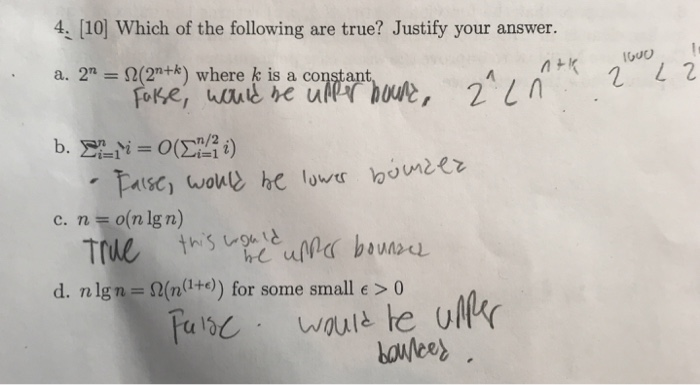 4. [10] Which of the following are true? Justify your answer.
a. 2ⁿ = Ω(2ⁿ⁺ᵏ) where k is a constant.
False, would be upper bound, 2ⁿ < nⁿ⁺ᵏ . 2¹⁰⁰⁰ < 2
b. ∑ⁿᵢ₌₁ i = O(∑ⁿ/²ᵢ₌₁ i)
• False, would be lower bounded
c. n = o(n lg n)
True this would
be upper bounded
d. n lg n = Ω(n⁽¹⁺ᵋ⁾) for some small ϵ > 0
False . would be upper
bounded .